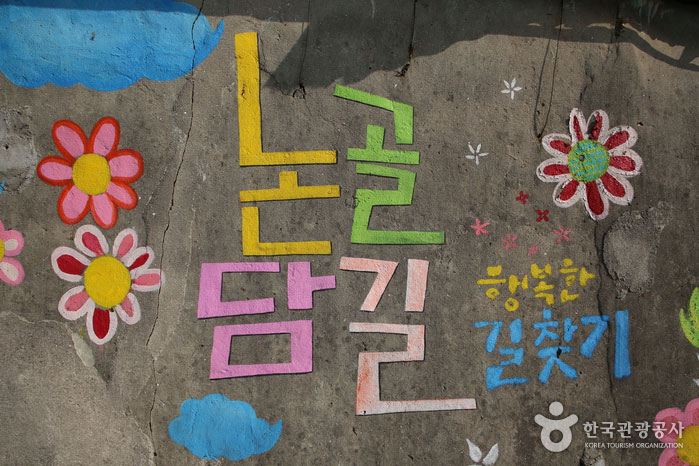 논골
담길
행복한
길찾기
한국관광공사
KOREA TOURISM ORGANIZATION